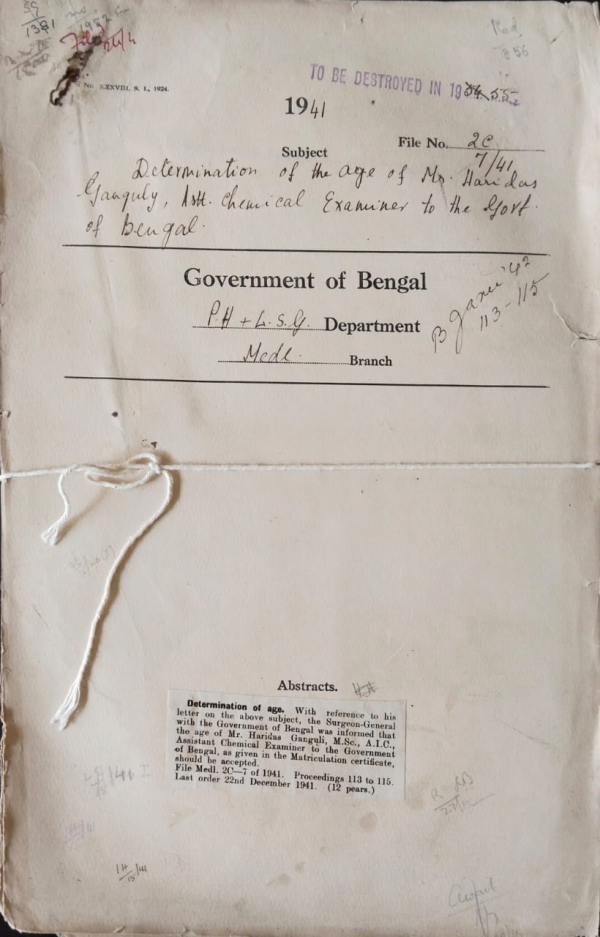 1381
No. XXXVIII, S. I., 1924.
TO BE DESTROYED IN 19
1941
File No. 2C
7/41
Subject
Determination of the age of Mr. Haridas
Ganguly, Asst. Chemical Examiner to the Govt.
of Bengal.
Government of Bengal
P.H + L.S.G. Department
Medl. Branch
B Janu '42
113-115
Abstracts.
Determination of age. With reference to his
letter on the above subject, the Surgeon-General
with the Government of Bengal was informed that
the age of Mr. Haridas Ganguli, M.Sc., A.I.C.,
Assistant Chemical Examiner to the Government
of Bengal, as given in the Matriculation certificate,
should be accepted.
File Medl. 2C—7 of 1941. Proceedings 113 to 115.
Last order 22nd December 1941. (12 pears.)